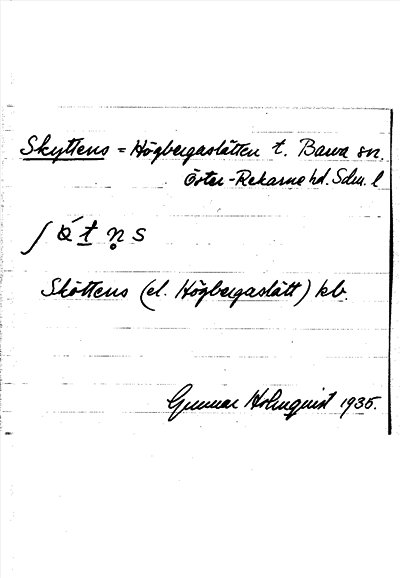 Skyttens = Högbergaslätten t. Barva sn.
Öster-Rekarne hd. Sdm. l
Sköttens (el. Högbergaslätt) kb.
Gunnar Holmquist 1935.